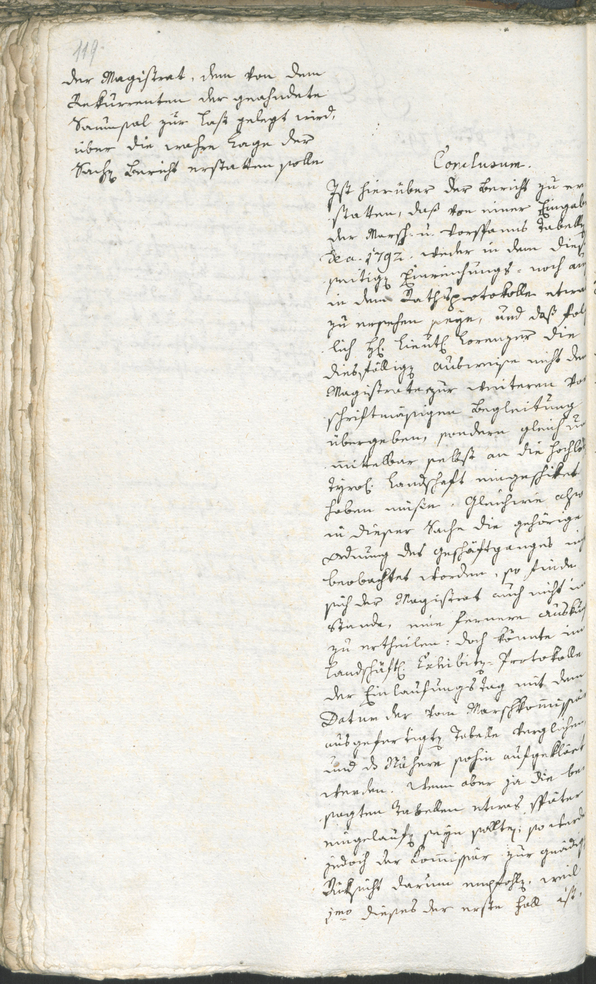 119.
der Magistrat, dem von dem
Rekurenten der geahndete
Saumsal zur Last gelegt wird,
über die wahre Lage der
Sache Bericht erstatten solle
Conclusum.
Ist hierüber der Bericht zu er
statten, daß von einer Eingab
der Marsch u. Vorspanns Tabelle
de a. 1792. weder in dem dies
seitigen Einreichungs- noch an
in dem Rathsprotokolle etwas
zu ersehen seye, und daß folg
lich H. Lieut. Lorenzer die
diesfälligen Ausweise nicht dem
Magistrate zur weiteren vor
schriftmäsigen Begleitung
übergeben, sondern gleich un
mittelbar selbst an die Hochlöb
tyrol. Landschaft eingeschiket
haben müße. Gleichwie also
in dieser Sache die gehörige
Ordnung des Geschäftganges nicht
beobachtet worden, so finde
sich der Magistrat auch nicht im
Stande, eine fernere Auskun
zu ertheilen: doch könnte im
Landschäftl. Exhibiten-Protokolle
der Einlaufungstag mit dem
Datum der vom Marschkommissär
ausgefertigten Tabelle verglichen
und das Nähere sohin aufgeklärt
werden. Wenn aber ja die be
sagten Tabellen etwas später
eingelaufen seyn sollten, so werde
jedoch der Kommissär zur gnädig
Rüksicht darum empfohlen, weil
imo dieses der erste Fall ist,